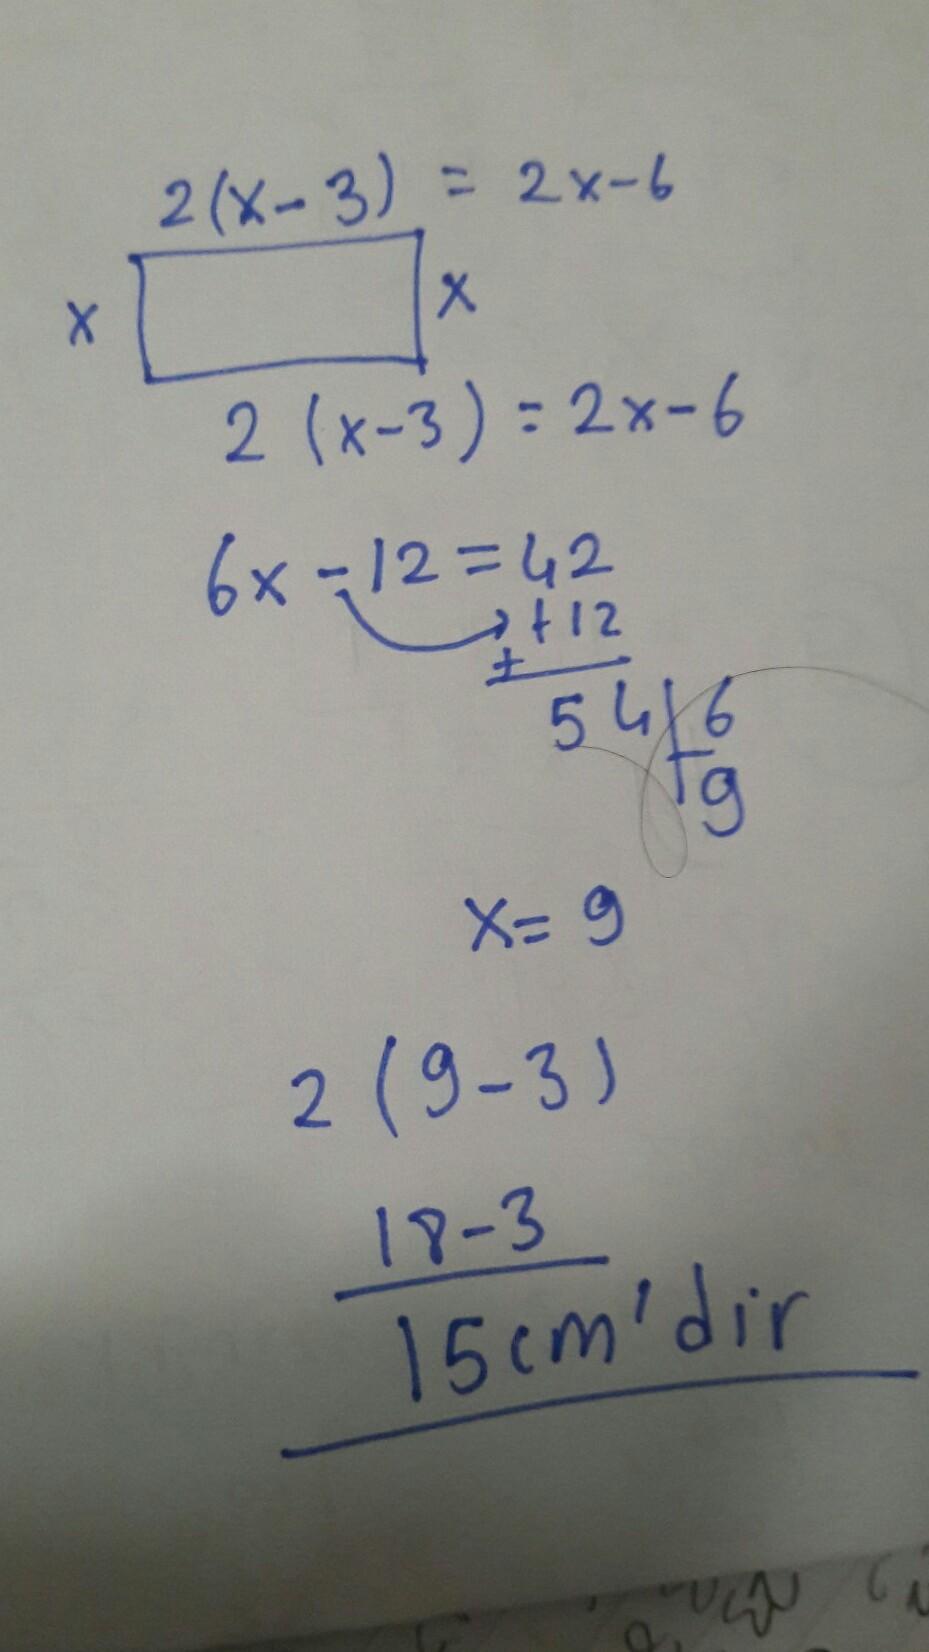 2(x-3) = 2x-6
x x
2(x-3) = 2x-6
6x-12=42
+12
+
54 6
9
x=9
2(9-3)
18-3
15cm'dir